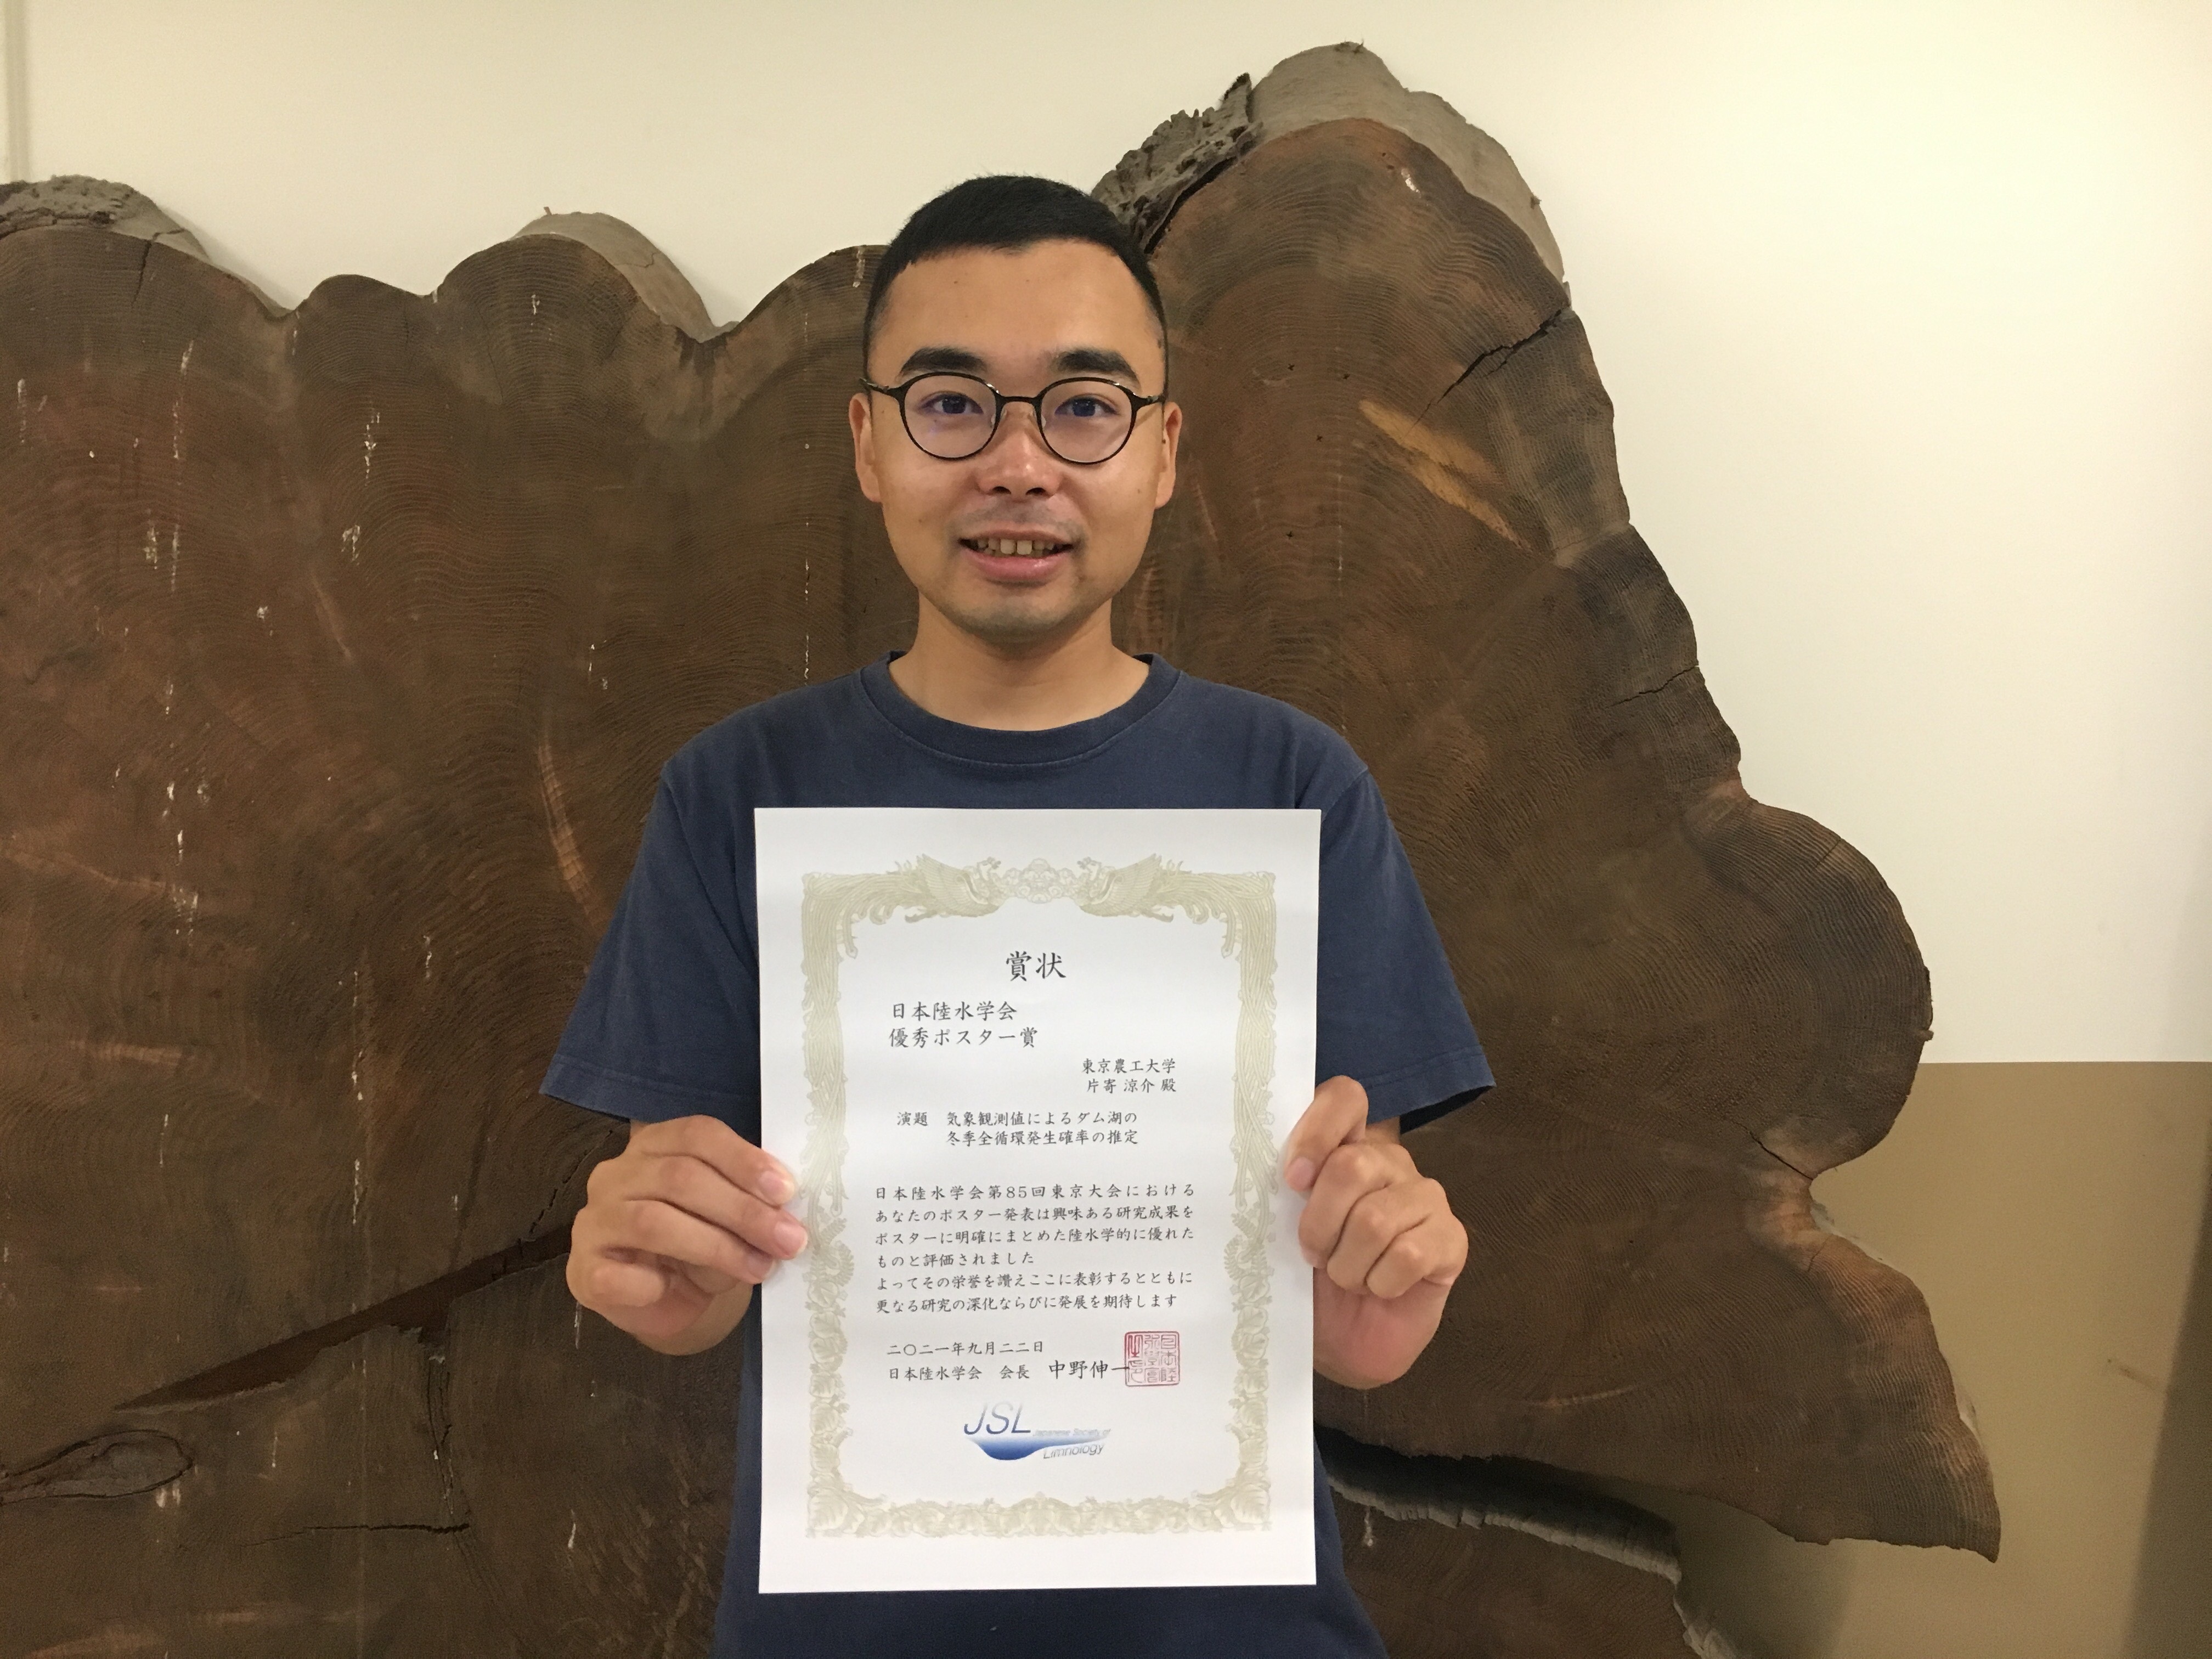 賞状
日本陸水学会
優秀ポスター賞
東京農工大学
片寄 涼介 殿
演題 気象観測値によるダム湖の
冬季全循環発生確率の推定
日本陸水学会第85回東京大会における
あなたのポスター発表は興味ある研究成果を
ポスターに明確にまとめた陸水学的に優れた
ものと評価されました
よってその栄誉を讃えここに表彰するとともに
更なる研究の深化ならびに発展を期待します
二〇二一年九月二二日
日本陸水学会 会長 中野伸一
JSL Japanese Society of
Limnology